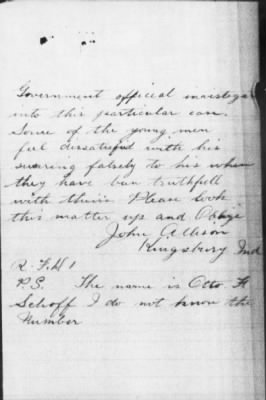 Government official investigat
into this particular case.
Some of the young men
ful dissatisfied with his
swaring falsely to his when
they have ben truthfull
with theirs. Please Look
this matter up and Oblige
John Allison
Kingsbury Ind
R.F.D 1
P.S. The name is Otto H
Schoff I do not know the
Number